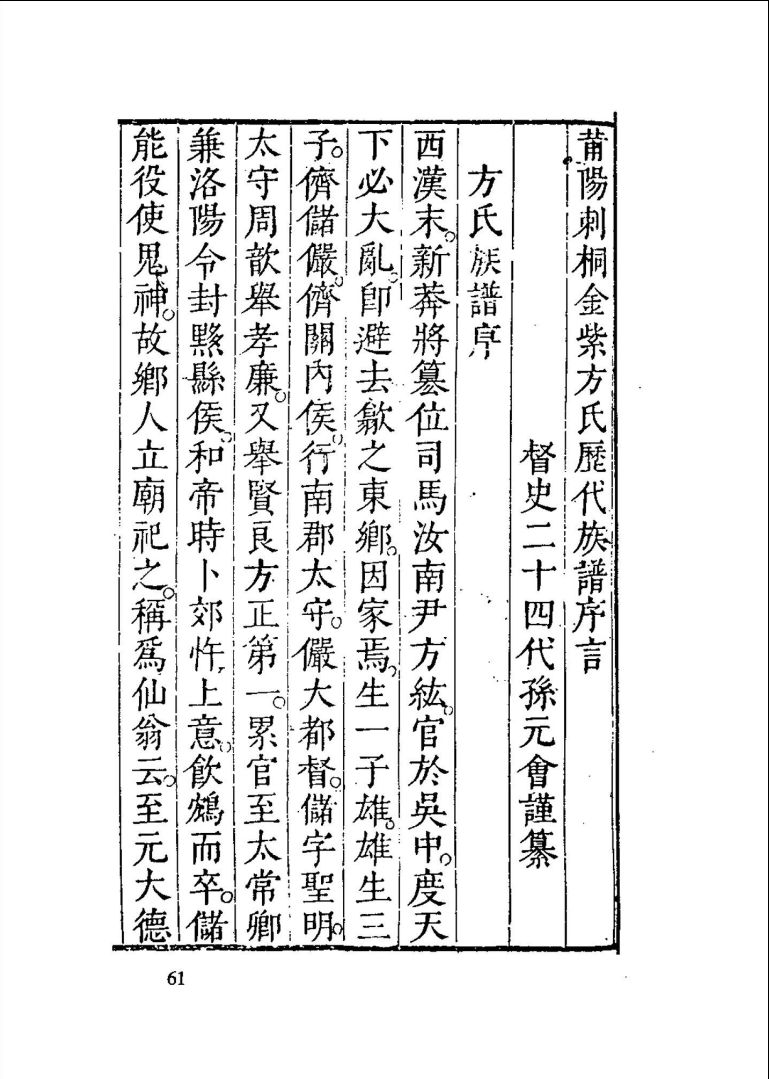 莆陽刺桐金紫方氏歷代族譜序言
督史二十四代孫元會謹纂
方氏族譜序
西漢末。新莽將篡位司馬汝南尹方紘。官於吳中。度天
下必大亂。卽避去歙之東鄉。因家焉。生一子雄。雄生三
子。儕儲儼。儕關內侯。行南郡太守。儼大都督。儲字聖明。
太守周歆舉孝廉。又舉賢良方正第一。累官至太常卿
兼洛陽令封黟縣侯。和帝時卜郊忤上意。飮鴆而卒。儲
能役使鬼神。故鄉人立廟祀之。稱爲仙翁云。至元大德
61